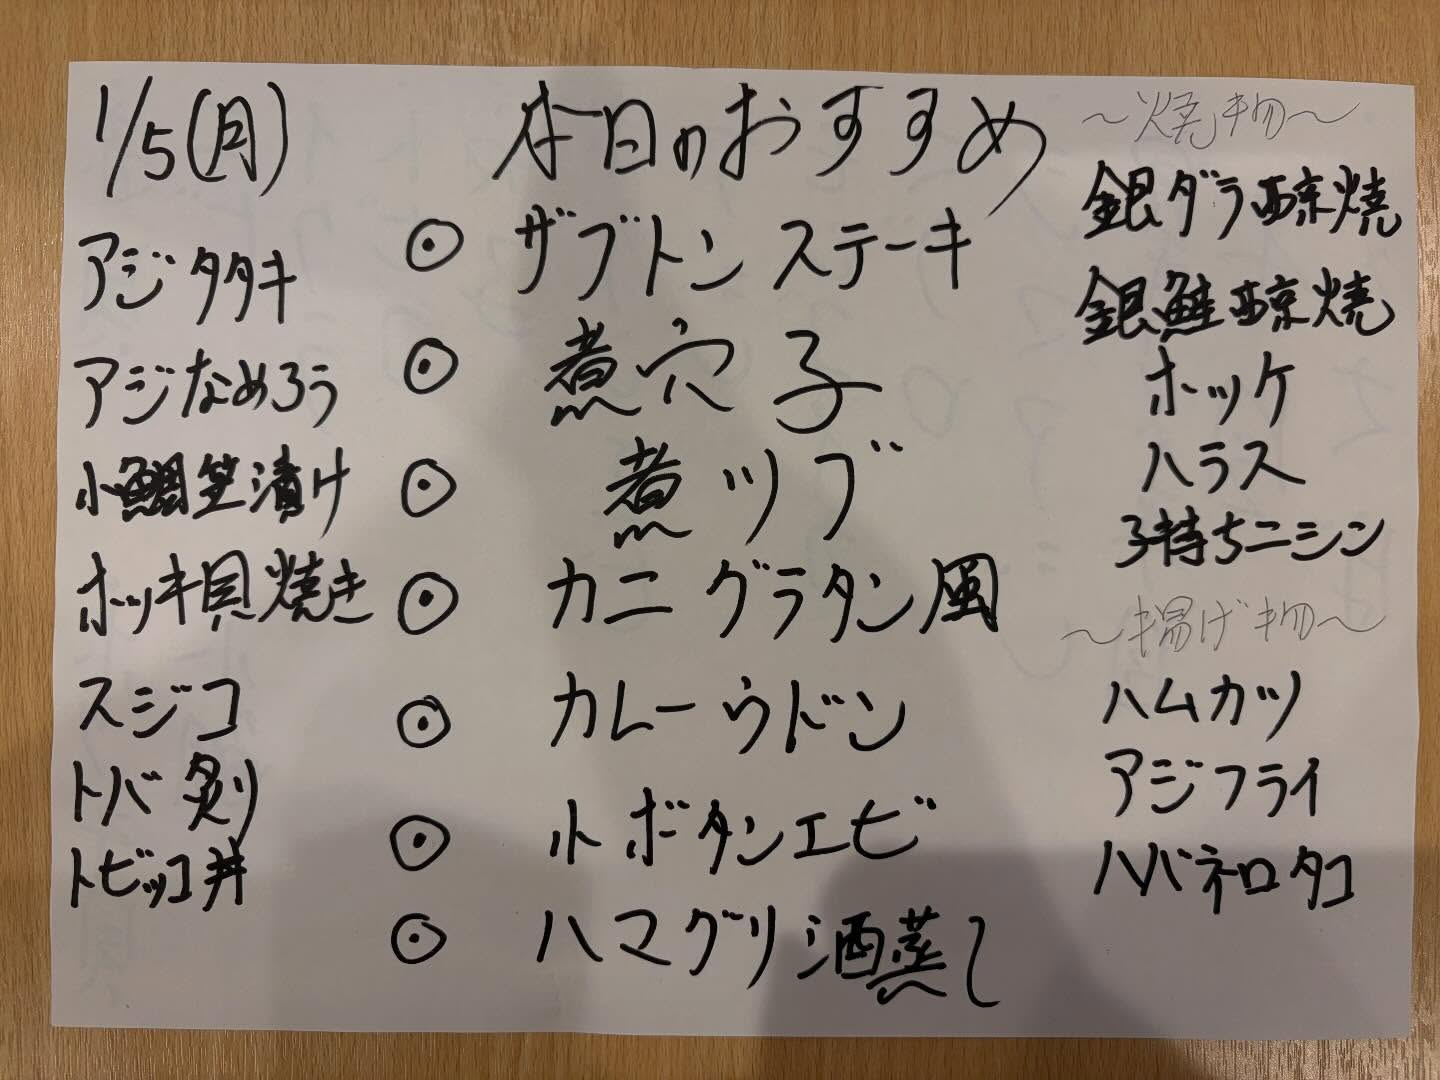 1/5(月)
本日のおすすめ
アジタタキ
アジなめろう
小鯛笹漬け
ホッキ貝焼き
スジコ
トバ炙り
トビッコ丼
◎ ザブトンステーキ
◎ 煮穴子
◎ 煮ツブ
◎ カニグラタン風
◎ カレーウドン
◎ 小ボタンエビ
◎ ハマグリ酒蒸し
〜焼物〜
銀ダラ醇焼
銀鮭醇焼
ホッケ
ハラス
子持ちニシン
〜揚げ物〜
ハムカツ
アジフライ
ハバネロタコ